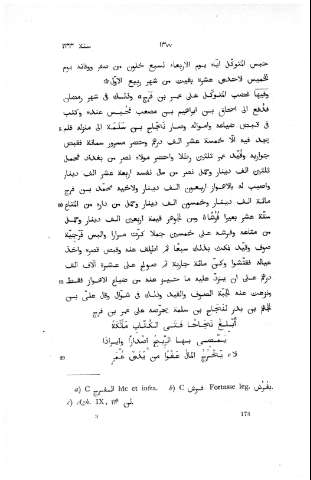 سنة ٢٣٣ ١٣٧٧
حبس المتوكل ايّاه يوم الاربعاء لسبع خلون من صفر ووفاته يوم
الخميس لاحدى عشرة بقيت من شهر ربيع الاوّل
وفيها غضب المتوكّل على عمر بن فرج وذلك فى شهر رمضان
فدُفع الى اسحاق بن ابراهيم بن مصعب فحُبس عنده وكتب
فى قبض ضياعه وامواله وصار نجاح بن سلمة الى منزله فلم
يجد فيه الّا خمسة عشر الف درهم وحضر مسرور سمانة فقبض
جواريه وقُيّد عمر ثلثين رطلا واحضر مولاه نصر من بغداد فحمل
ثلثين الف دينار وحمل نصر من مال نفسه اربعة عشر الف دينار
واصيب له بالاهواز اربعون الف دينار ولاخيه محمّد بن فرج
مائة الف دينار وخمسون الف دينار وحمل من داره من المتاع
ستّة عشر بعيرا فرشا ومن الجوهر قيمة اربعين الف دينار وحمل
من متاعه وفرشه على خمسين جملا كرّت مرارا والبس فرجيّة
صوف وقُيّد فمكث بذلك سبعا ثم اطلق عنه وقبض قصره واخذ
عياله ففتّشوا وكنّ مائة جارية ثم صولح على عشرة آلاف الف
درهم على ان يردّ عليه ما حيز عنه من ضياع الاهواز فقط
ونزعت عنه الجبّة الصوف والقيد وذلك فى شوّال وقال علىّ بن
الجهم بن بدر لنجاح بن سلمة يحرّضه على عمر بن فرج
أبلغ نجاحا فتى الكتّاب مألكة
يمضى بها الريح اصدارا وايرادا
لا يخرج المال عفوا من يدى عمر
a) C المفرج Ide et infra. b) C فرش Fortasse leg. بفرش.
c) Agh. IX, ١١٣ لن
173